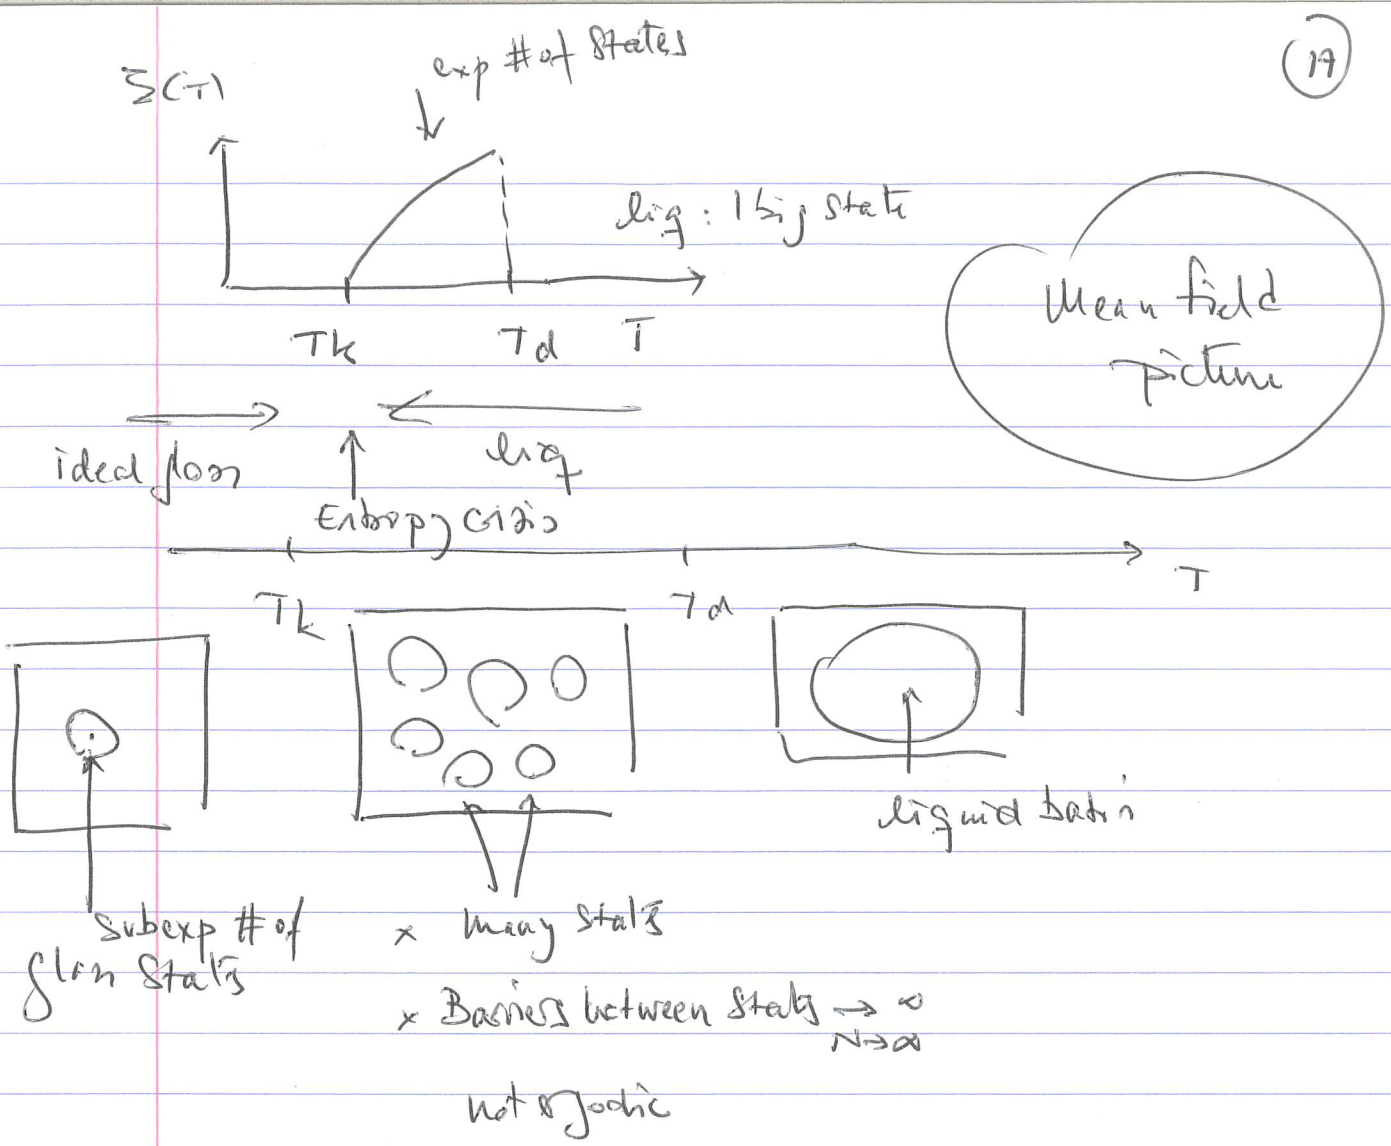 19
exp # of states
Σ(T)
liq : 1 big state
Mean field
picture
Tk Td T
ideal glass
liq
Entropy crisis
T
Tk Td
liquid basin
subexp # of
glass states
x many states
x Barriers between states → ∞
N→∞
not ergodic